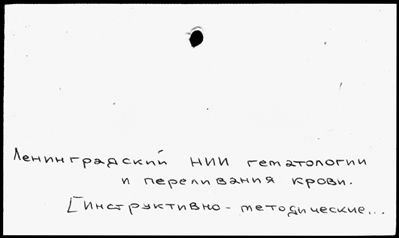 Ленинградский НИИ гематологии
и переливания крови.
[Инструктивно-методические...